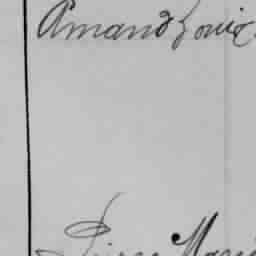 Amand Louis
Pierre Marie